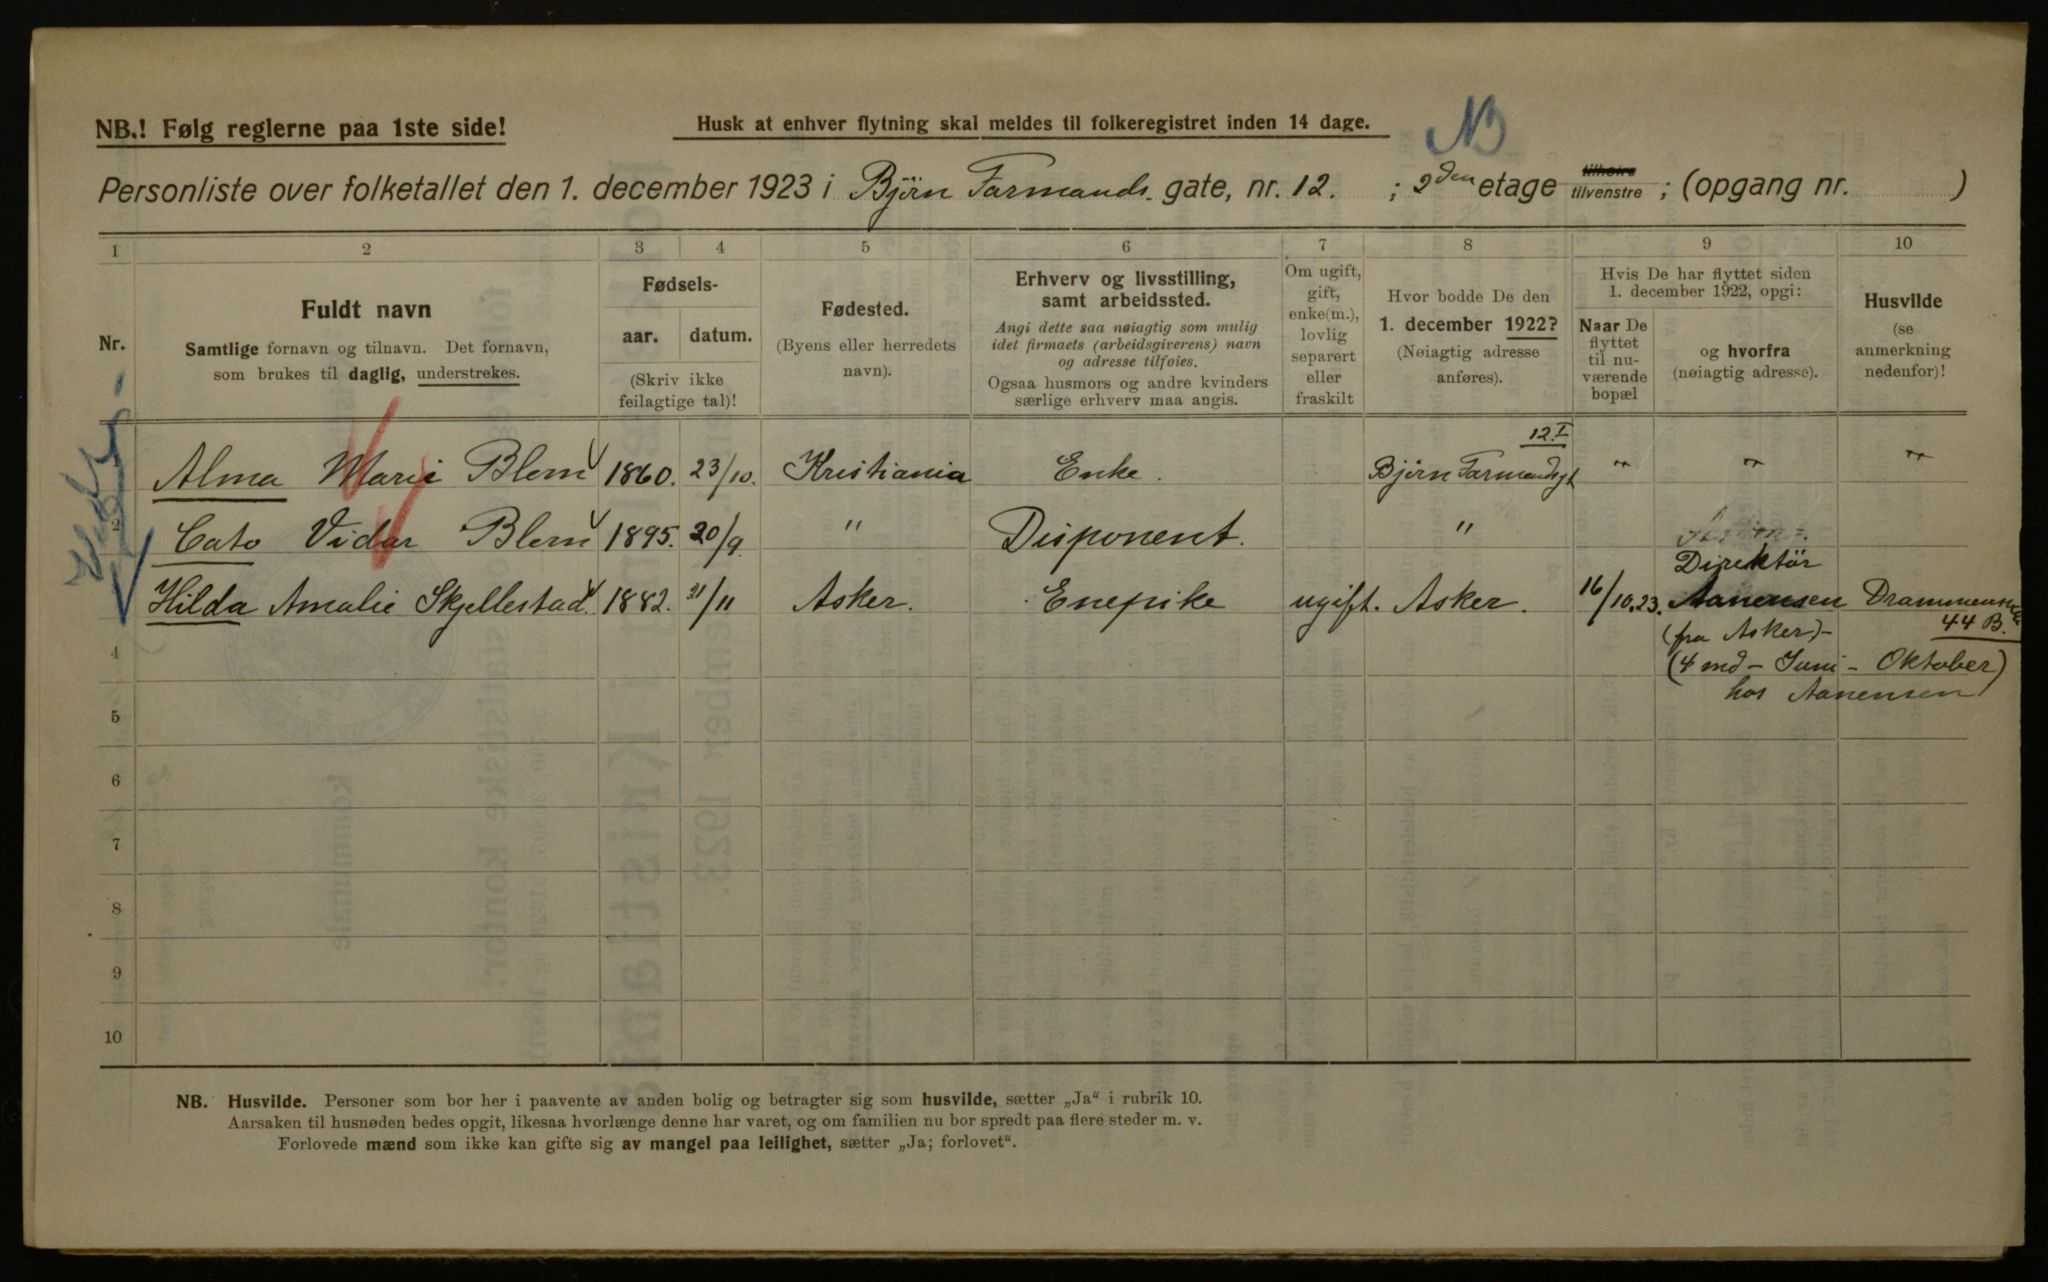 NB
NB.! Følg reglerne paa 1ste side!
Husk at enhver flytning skal meldes til folkeregistret inden 14 dage.
Personliste over folketallet den 1. december 1923 i Bjørn Farmands gate, nr. 12. ; 2den etage tilhøire tilvenstre ; (opgang nr. )
1 2 3 4 5 6 7 8 9 10
Nr.
Fuldt navn
Samtlige fornavn og tilnavn. Det fornavn,
som brukes til daglig, understrekes.
Fødsels-
aar. datum.
(Skriv ikke
feilagtige tal)!
Fødested.
(Byens eller herredets
navn).
Erhverv og livsstilling,
samt arbeidssted.
Angi dette saa nøiagtig som mulig
idet firmaets (arbeidsgiverens) navn
og adresse tilføies.
Ogsaa husmors og andre kvinders
særlige erhverv maa angis.
Om ugift,
gift,
enke(m.),
lovlig
separert
eller
fraskilt
Hvor bodde De den
1. december 1922?
(Nøiagtig adresse
anføres).
Hvis De har flyttet siden
1. december 1922, opgi:
Naar De
flyttet
til nu-
værende
bopæl
og hvorfra
(nøiagtig adresse).
Husvilde
(se
anmerkning
nedenfor)!
12 I
Alma Marie Blom 1860. 23/10. Kristiania Enke. Bjørn Farmandsgt " " "
2 Cato Vidar Blom 1895. 20/9. " Disponent. "
Direktør
Hilda Amalie Skjellestad. 1882. 21/11 Asker. Enepike ugift. Asker. 16/10.23. Aanensen Drammensv
44 B.
4 (fra Asker)-
(4 md - Juni - Oktober)
hos Aanensen
5
6
7
8
9
10
NB. Husvilde. Personer som bor her i paavente av anden bolig og betragter sig som husvilde, sætter „Ja“ i rubrik 10.
Aarsaken til husnøden bedes opgit, likesaa hvorlænge denne har varet, og om familien nu bor spredt paa flere steder m. v.
Forlovede mænd som ikke kan gifte sig av mangel paa leilighet, sætter „Ja; forlovet“.